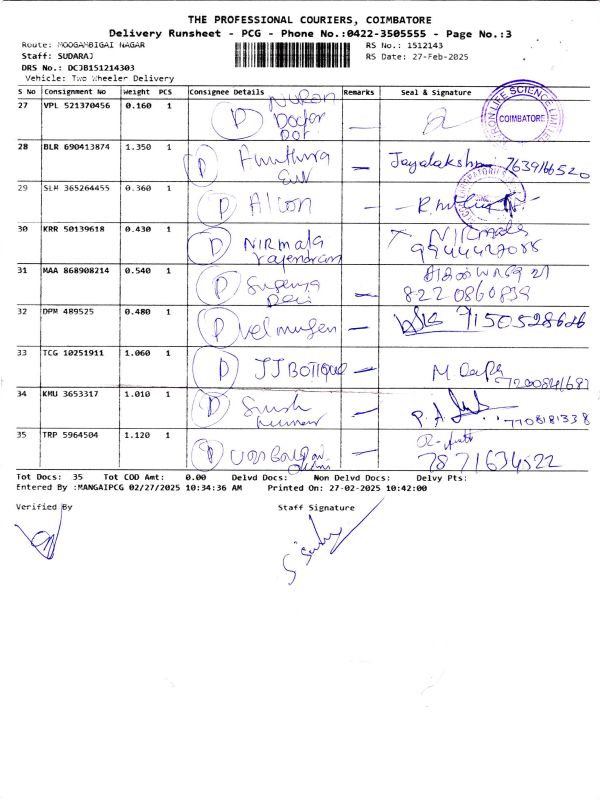 THE PROFESSIONAL COURIERS, COIMBATORE
Delivery Runsheet - PCG - Phone No.:0422-3505555 - Page No.:3
Route: MOOGAMBIGAI NAGAR RS No.: 1512143
Staff: SUDARAJ RS Date: 27-Feb-2025
DRS No.: DCJB151214303
Vehicle: Two Wheeler Delivery
S No Consignment No Weight PCS Consignee Details Remarks Seal & Signature
27 VPL 521370456 0.160 1 D Doctor
LIFE SCIENCE LIMITED
COIMBATORE
28 BLR 690413874 1.350 1 D — Jayalakshmi 7639166520
29 SLM 365264455 0.360 1 D Alcon —
30 KRR 50139618 0.430 1 D NIRmala rajendran NIRmala
9944427088
31 MAA 868908214 0.540 1 D Sugenya Devi —
8220860839
32 DPM 489525 0.480 1 D velmurugan — 9150528626
33 TCG 10251911 1.060 1 D JJ BOTIQUE — M
7200841687
34 KMU 3653317 1.010 1 D — P.A
7708181338
35 TRP 5964504 1.120 1 D
7871634522
Tot Docs: 35 Tot COD Amt: 0.00 Delvd Docs: Non Delvd Docs: Delvy Pts:
Entered By :MANGAIPCG 02/27/2025 10:34:36 AM Printed On: 27-02-2025 10:42:00
Verified By Staff Signature